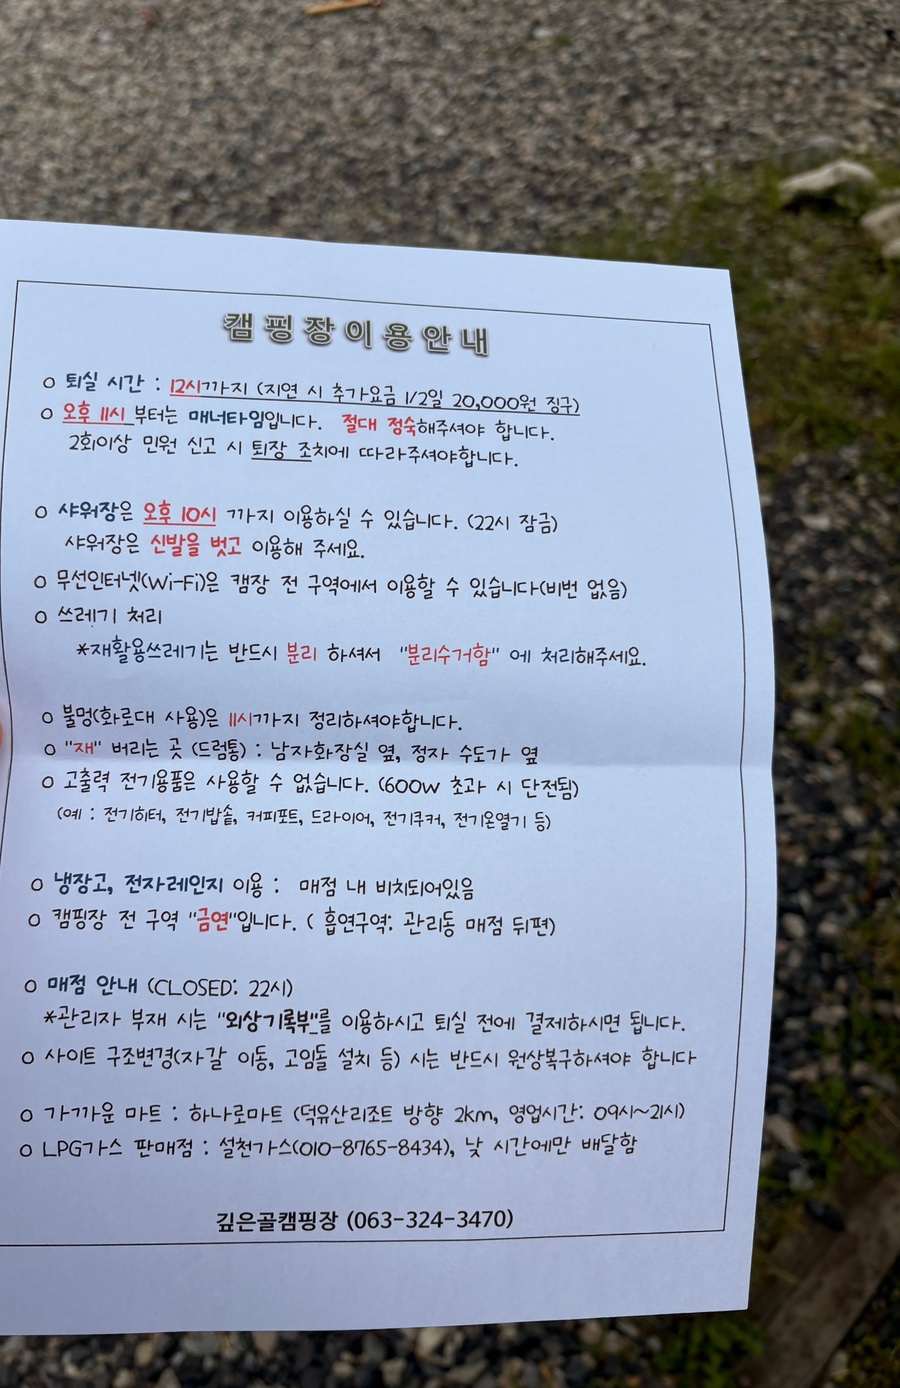 캠핑장이용안내
○ 퇴실 시간 : 12시까지 (지연 시 추가요금 1/2일 20,000원 징구)
○ 오후 11시 부터는 매너타임입니다. 절대 정숙해주셔야 합니다.
2회이상 민원 신고 시 퇴장 조치에 따라주셔야합니다.
○ 샤워장은 오후 10시 까지 이용하실 수 있습니다. (22시 잠금)
샤워장은 신발을 벗고 이용해 주세요.
○ 무선인터넷(Wi-Fi)은 캠장 전 구역에서 이용할 수 있습니다(비번 없음)
○ 쓰레기 처리
*재활용쓰레기는 반드시 분리 하셔서 "분리수거함" 에 처리해주세요.
○ 불멍(화로대 사용)은 11시까지 정리하셔야합니다.
○ "재" 버리는 곳 (드럼통) : 남자화장실 옆, 정자 수도가 옆
○ 고출력 전기용품은 사용할 수 없습니다. (600w 초과 시 단전됨)
(예 : 전기히터, 전기밥솥, 커피포트, 드라이어, 전기쿠커, 전기온열기 등)
○ 냉장고, 전자레인지 이용 : 매점 내 비치되어있음
○ 캠핑장 전 구역 "금연"입니다. ( 흡연구역: 관리동 매점 뒤편)
○ 매점 안내 (CLOSED: 22시)
*관리자 부재 시는 "외상기록부"를 이용하시고 퇴실 전에 결제하시면 됩니다.
○ 사이트 구조변경(자갈 이동, 고임돌 설치 등) 시는 반드시 원상복구하셔야 합니다
○ 가까운 마트 : 하나로마트 (덕유산리조트 방향 2km, 영업시간: 09시~21시)
○ LPG가스 판매점 : 설천가스(010-8765-8434), 낮 시간에만 배달함
깊은골캠핑장 (063-324-3470)